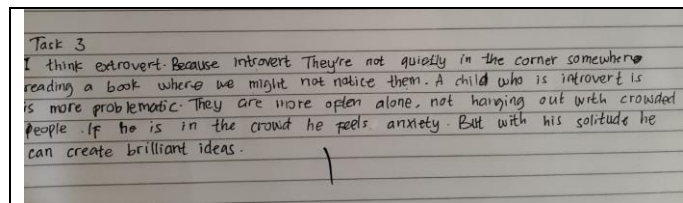 Task 3
I think extrovert. Because introvert They're not quietly in the corner somewhere
reading a book where we might not notice them. A child who is introvert is
is more problematic. They are more often alone, not hanging out with crowded
people. If he is in the crowd he feels anxiety. But with his solitude he
can create brilliant ideas.